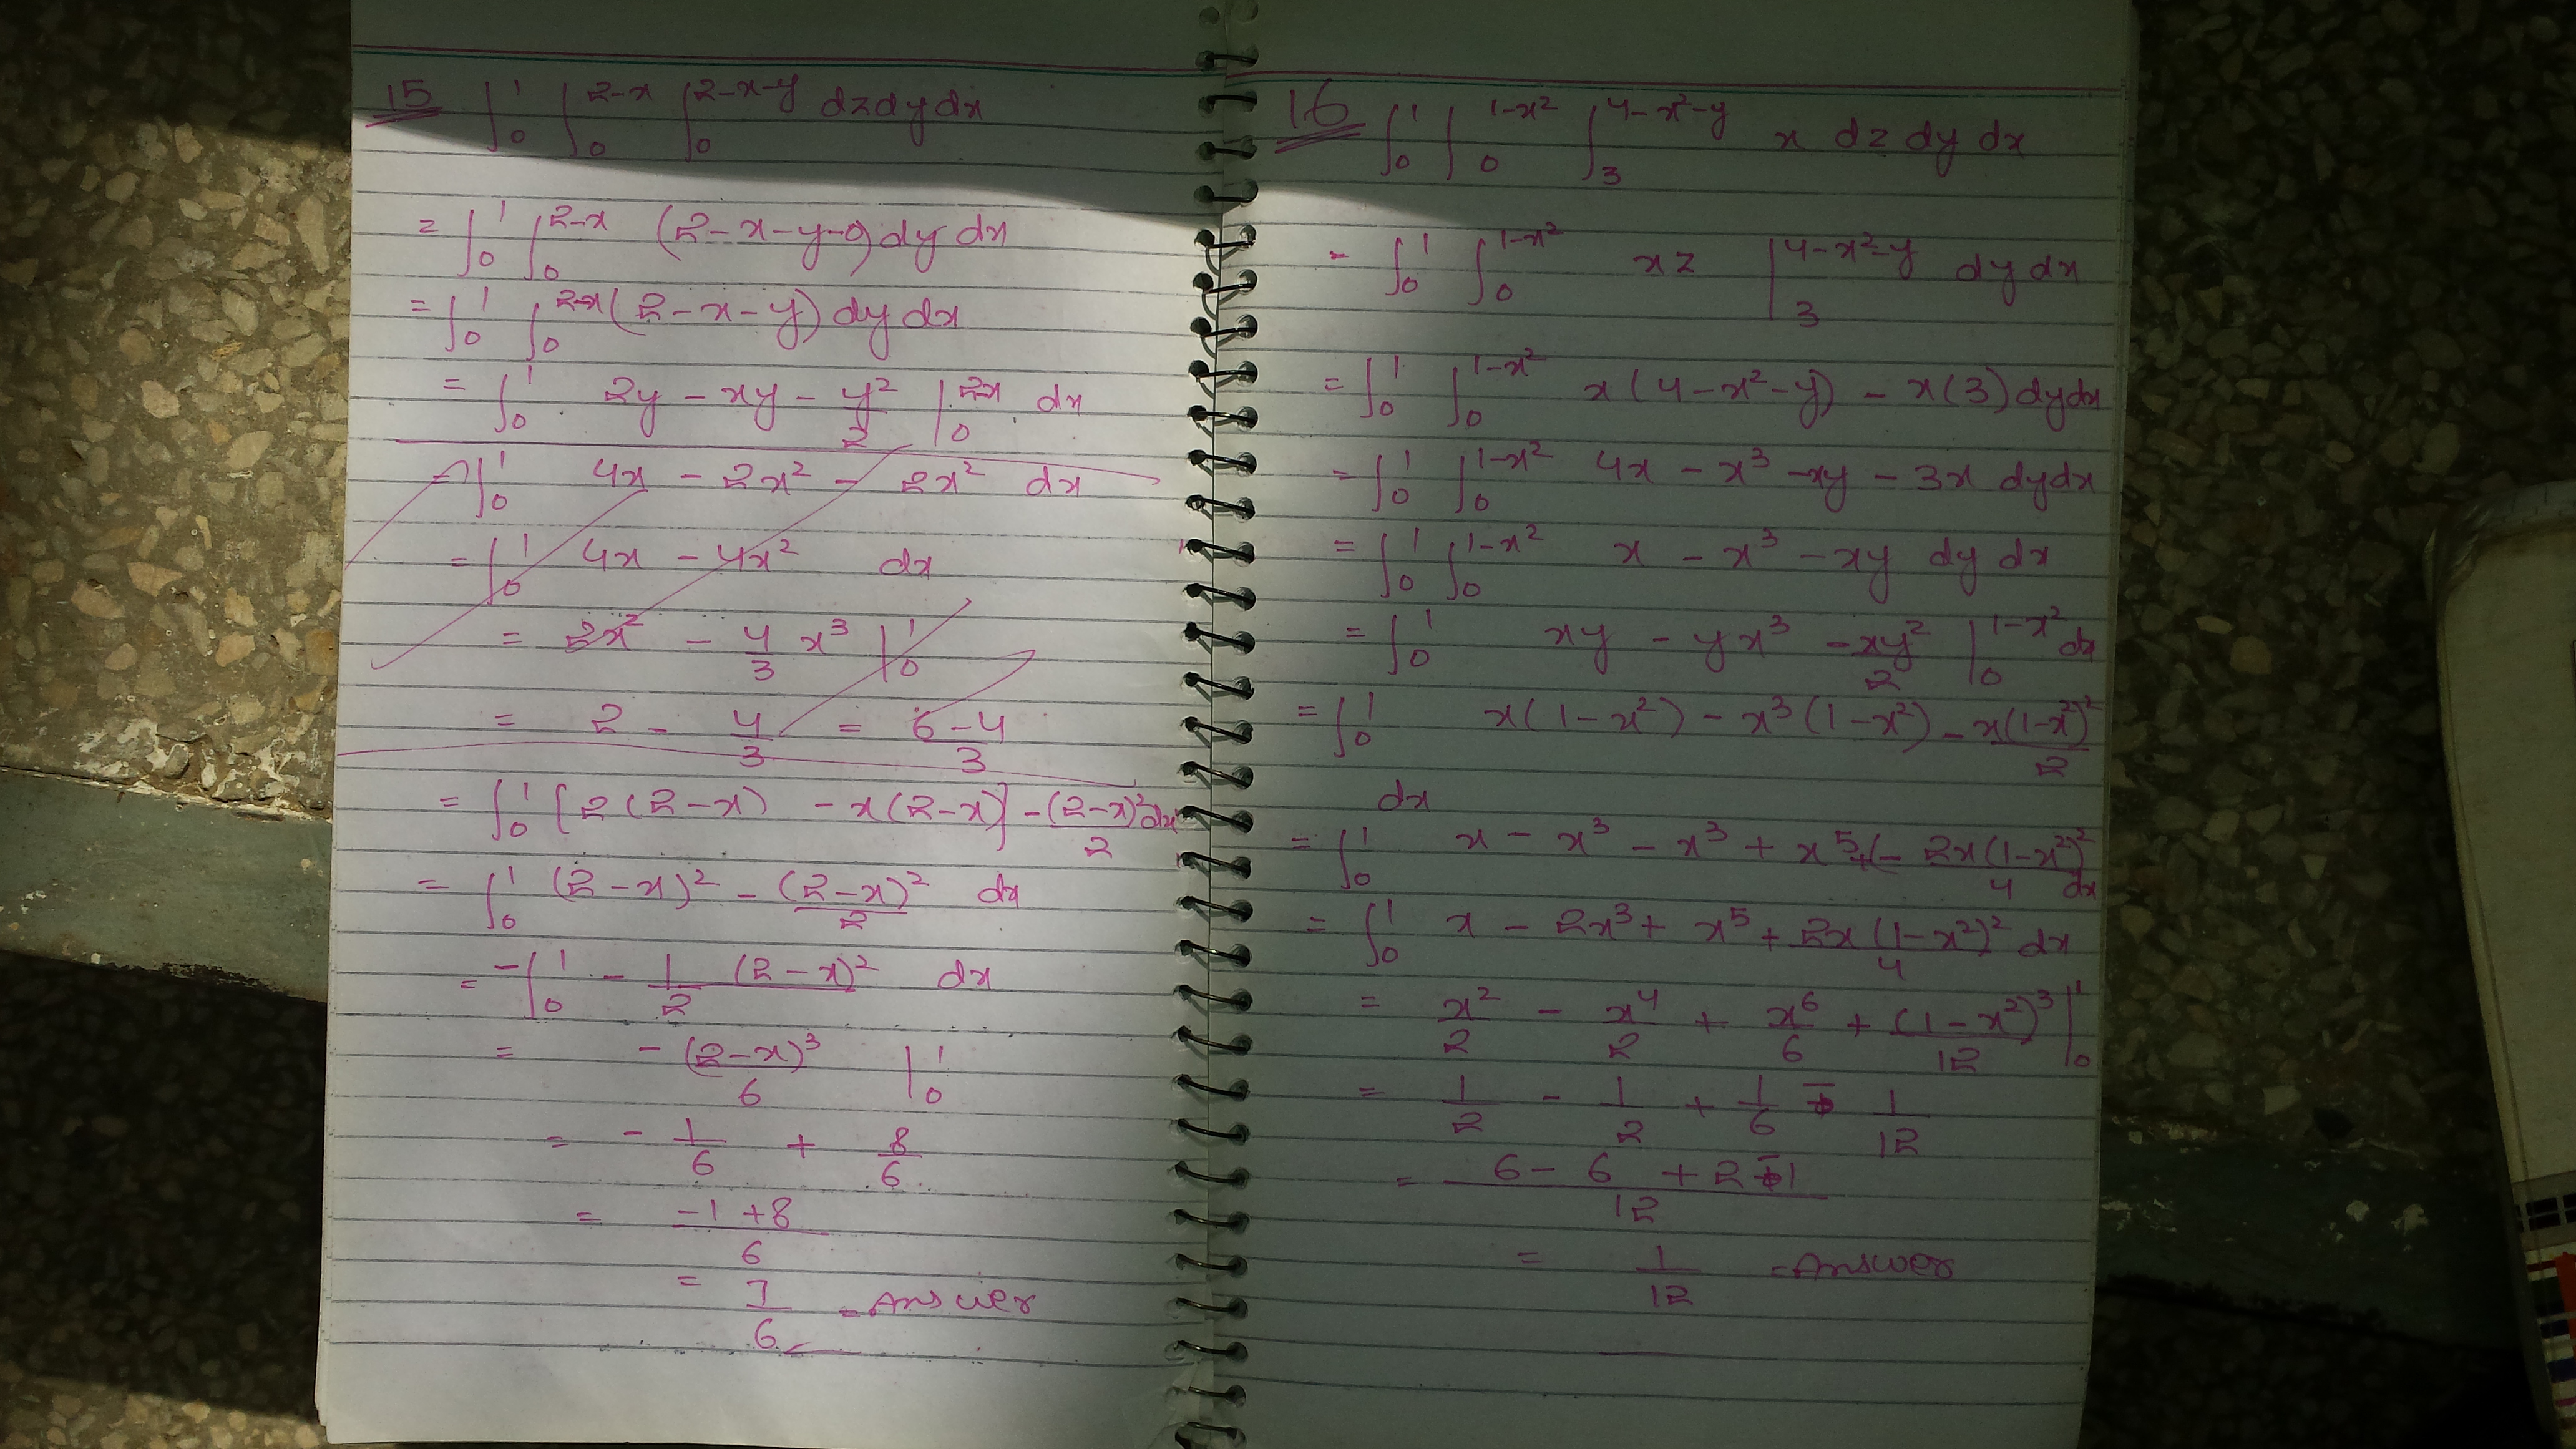 15 ∫₀¹ ∫₀^{2-x} ∫₀^{2-x-y} dz dy dx
= ∫₀¹ ∫₀^{2-x} (2-x-y-0) dy dx
= ∫₀¹ ∫₀^{2-x} (2-x-y) dy dx
= ∫₀¹ 2y - xy - y²/2 |₀^{2-x} dx
= ∫₀¹ 4x - 2x² - 2x² dx
= ∫₀¹ 4x - 4x² dx
= 2x² - 4/3 x³ |₀¹
= 2 - 4/3 = (6-4)/3
= ∫₀¹ [2(2-x) - x(2-x)] - (2-x)²/2 dx
= ∫₀¹ (2-x)² - (2-x)²/2 dx
= -∫₀¹ - 1/2 (2-x)² dx
= - (2-x)³/6 |₀¹
= - 1/6 + 8/6
= (-1+8)/6
= 7/6 - Answer
16 ∫₀¹ ∫₀^{1-x²} ∫₃^{4-x²-y} x dz dy dx
= ∫₀¹ ∫₀^{1-x²} xz |₃^{4-x²-y} dy dx
= ∫₀¹ ∫₀^{1-x²} x(4-x²-y) - x(3) dy dx
= ∫₀¹ ∫₀^{1-x²} 4x - x³ - xy - 3x dy dx
= ∫₀¹ ∫₀^{1-x²} x - x³ - xy dy dx
= ∫₀¹ xy - yx³ - xy²/2 |₀^{1-x²} dx
= ∫₀¹ x(1-x²) - x³(1-x²) - x(1-x²)²/2
dx
= ∫₀¹ x - x³ - x³ + x⁵ + (- 2x(1-x²)²/4 dx
= ∫₀¹ x - 2x³ + x⁵ + 2x(1-x²)²/4 dx
= x²/2 - x⁴/2 + x⁶/6 + (1-x²)³/12 |₀¹
= 1/2 - 1/2 + 1/6 - 1/12
= (6 - 6 + 2 - 1)/12
= 1/12 - Answer